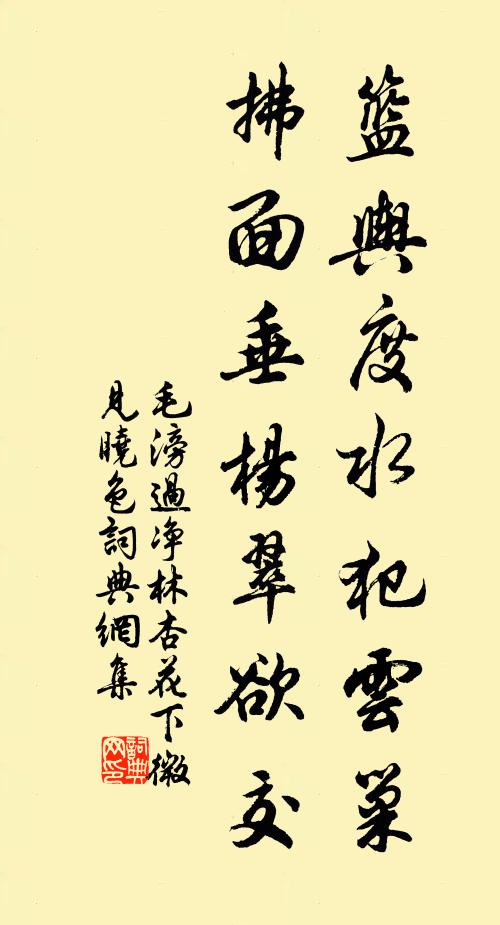 籃輿度水犯雲巢
拂面垂楊翠欲交
毛滂過淨林杏花下微
見曉色詞典網集
詞典網印